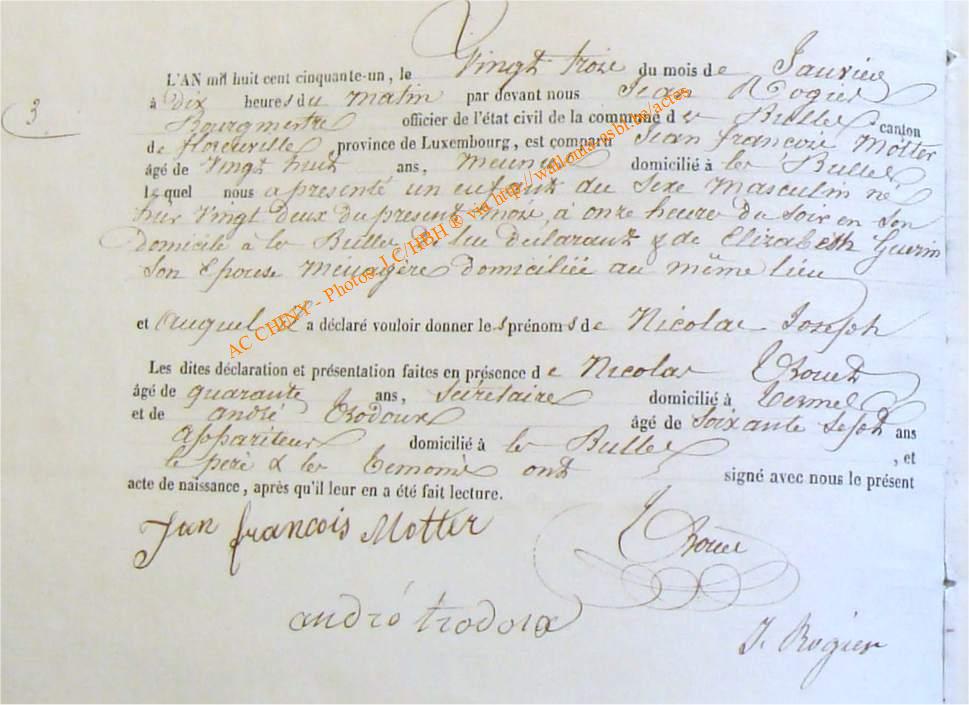 L'AN mil huit cent cinquante-un, le Vingt trois du mois de Janvier
3
à Dix heures du Matin par devant nous Jean Rogier
Bourgmestre officier de l'état civil de la commune de Bulles, canton
de florenville, province de Luxembourg, est comparu Jean françois Motter
âgé de Vingt huit ans, Meunier domicilié à les Bulles
lequel nous a presenté un enfant du Sexe Masculin né
hier Vingt deux du present mois, à onze heure du Soir en Son
domicile à les Bulles, de lui declarant & de Elizabeth Guerin
Son Epouse Menagère domiciliée au même lieu
et auquel il a déclaré vouloir donner les prénoms de Nicolas Joseph
Les dites déclaration et présentation faites en présence de Nicolas
âgé de quarante ans, Secretaire domicilié à termes
et de andré trodoux âgé de Soixante Sept ans
appariteur domicilié à les Bulles, et
le peré & les temoins ont signé avec nous le présent
acte de naissance, après qu'il leur en a été fait lecture.
Jan françois Motter
andré trodoux
J. Rogier
AC CHINY - Photos J.C/HBH ® via http://wallonia-asbl.be/actes